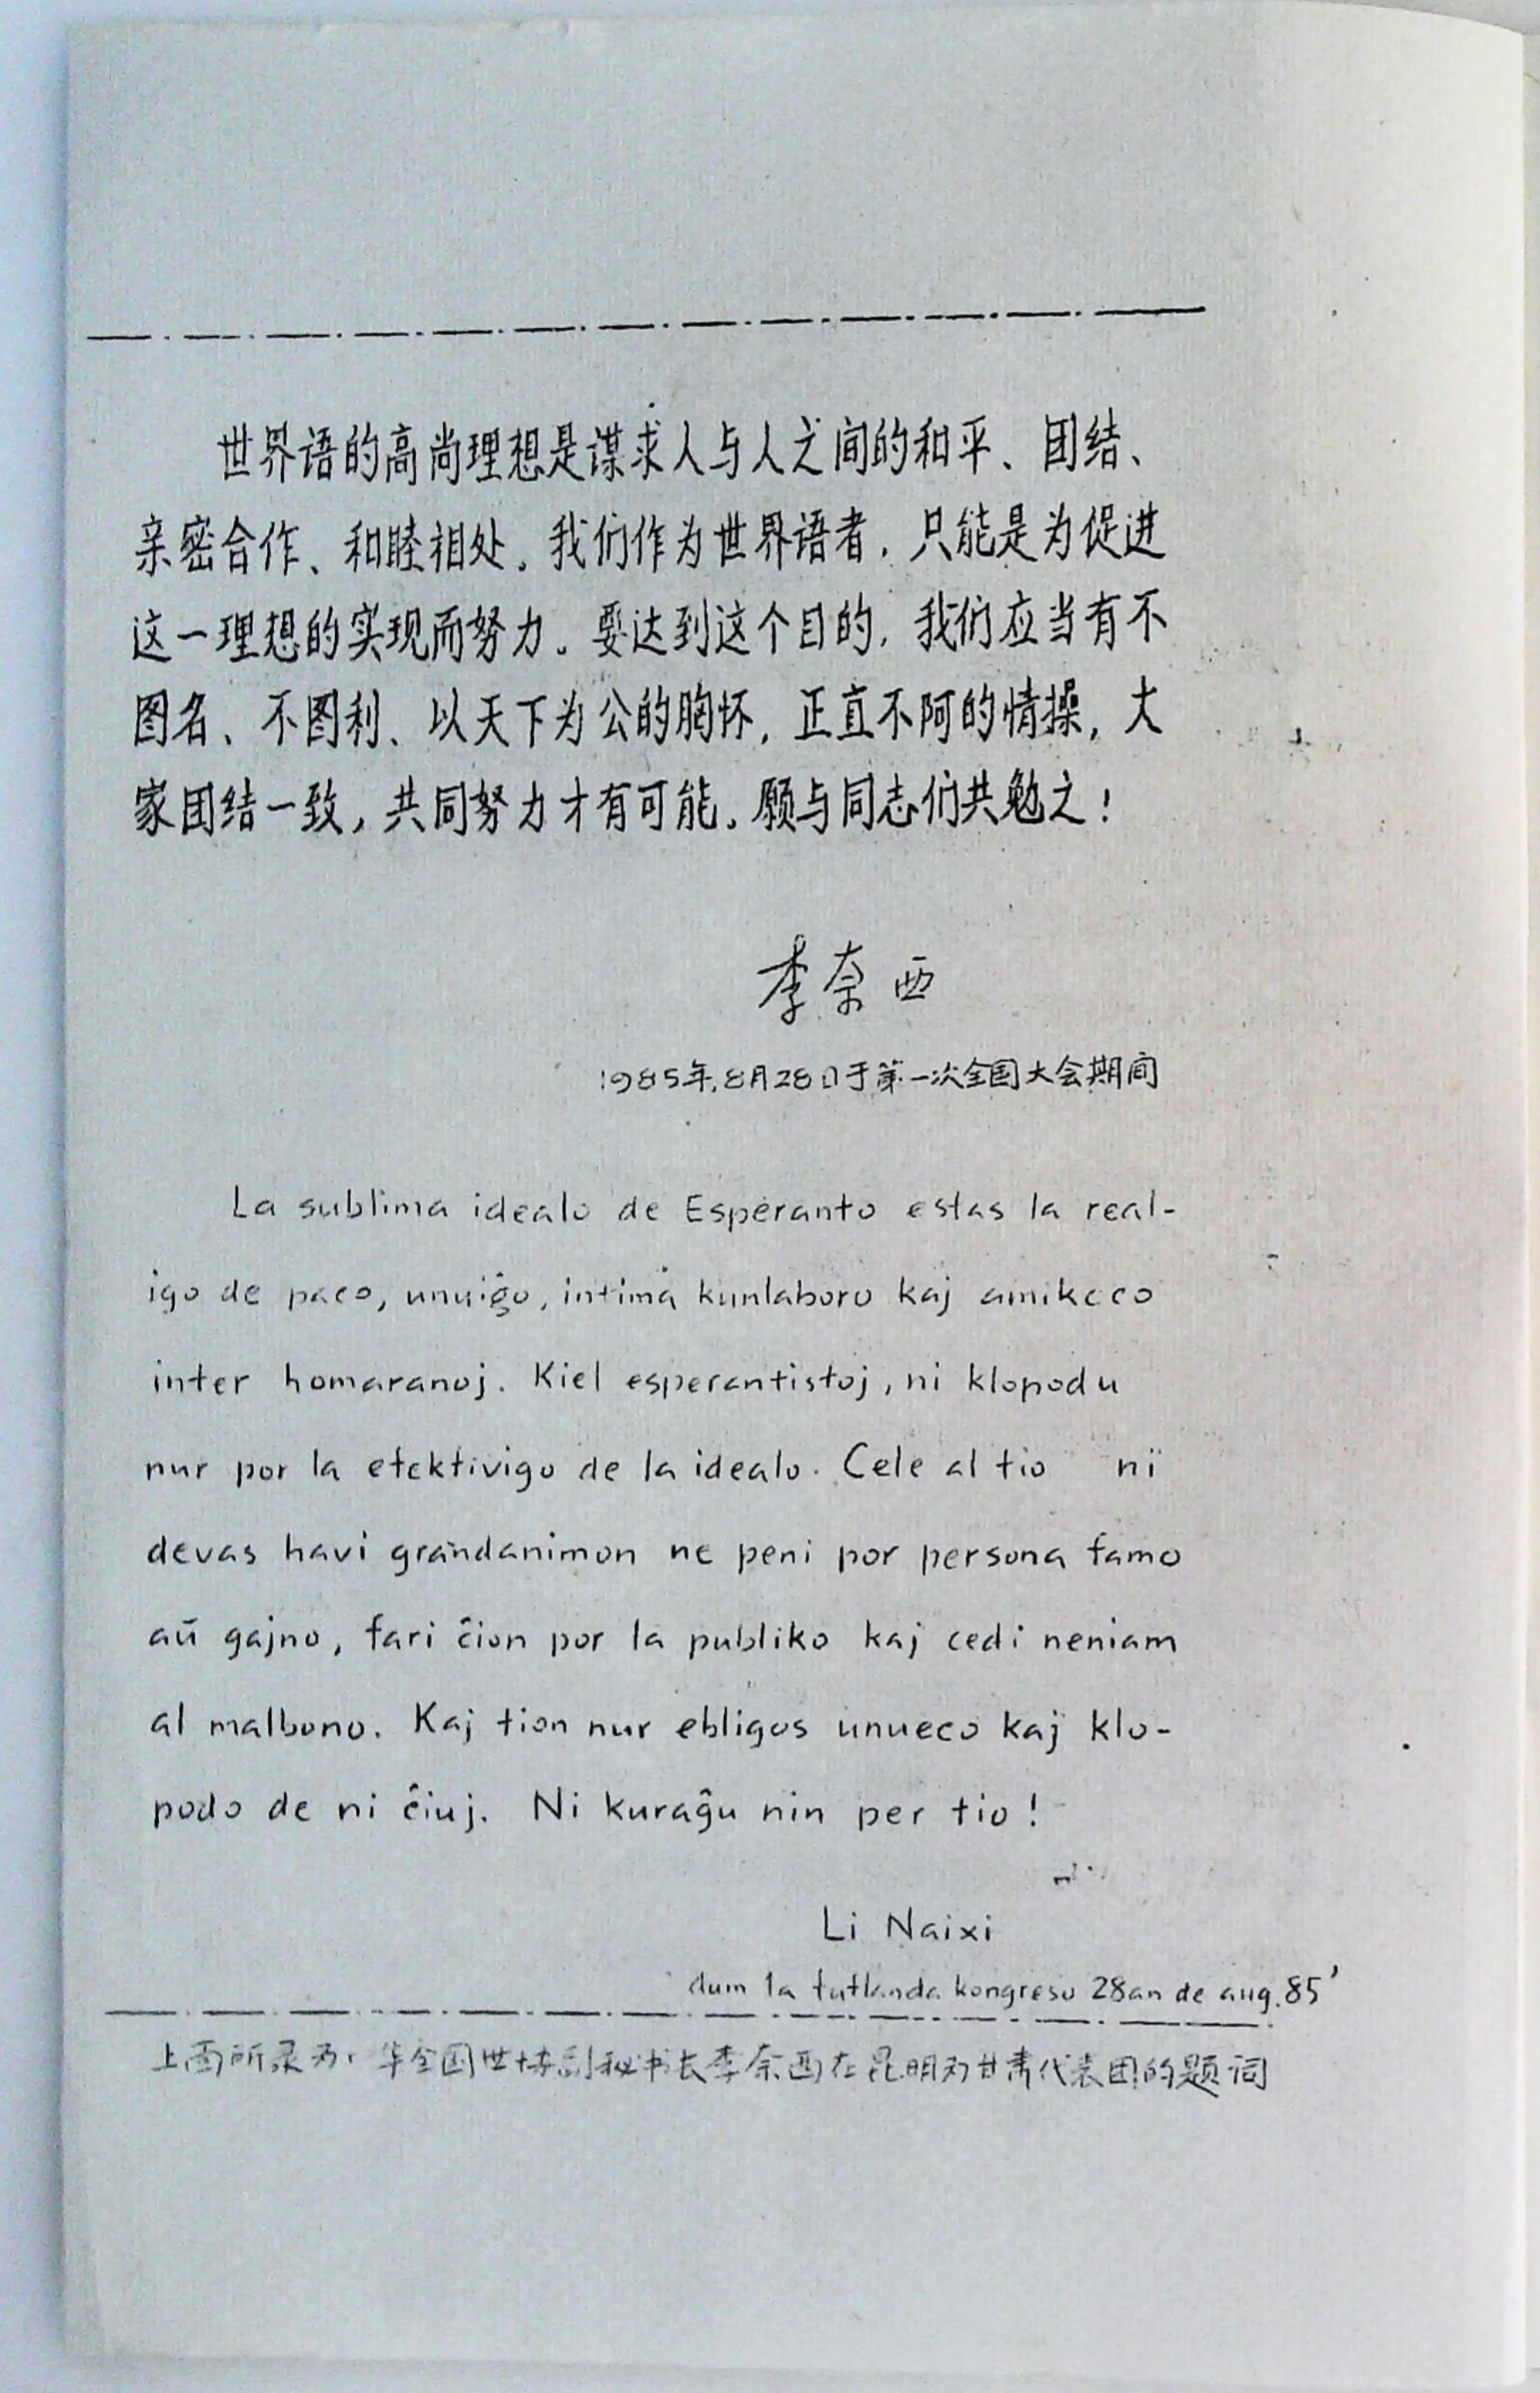 世界语的高尚理想是谋求人与人之间的和平、团结、
亲密合作、和睦相处。我们作为世界语者，只能是为促进
这一理想的实现而努力。要达到这个目的，我们应当有不
图名、不图利、以天下为公的胸怀，正直不阿的情操，大
家团结一致，共同努力才有可能。愿与同志们共勉之！
李奈西
1985年.8月28日于第一次全国大会期间
La sublima idealo de Esperanto estas la real-
igo de paco, unuiĝo, intima kunlaboro kaj amikeco
inter homaranoj. Kiel esperantistoj, ni klopodu
nur por la efektivigo de la idealo. Cele al tio ni
devas havi grandanimon ne peni por persona famo
aŭ gajno, fari ĉion por la publiko kaj cedi neniam
al malbono. Kaj tion nur ebligos unueco kaj klo-
podo de ni ĉiuj. Ni kuraĝu nin per tio!
Li Naixi
dum la tutlanda kongreso 28an de aug. 85'
上面所录为 华全国世协副秘书长李奈西在昆明为甘肃代表团的题词